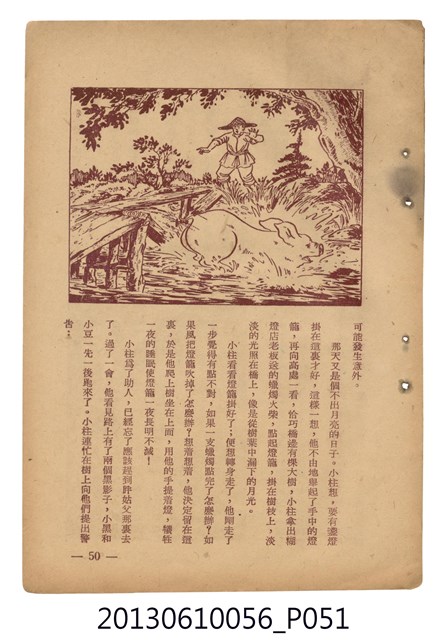 可能發生意外。
那天又是個不出月亮的日子。小柱想，要有盞燈
掛在這裏才好，這樣一想，他不由地舉起了手中的燈
籠，再向高處一看，恰巧橋邊有棵大樹，小柱拿出種
燈店老板送的蠟燭火柴，點起燈籠，掛在樹枝上，淡
淡的光照在橋上，像是從樹葉中漏下的月光。
小柱看看燈籠掛好了；便想轉身走了，他剛走了
一步覺得有點不對，如果一支蠟燭點完了怎麼辦？如
果風把燈籠吹掉了怎麼辦？想着想着，他決定留在這
裏，於是他爬上樹坐在上面，用他的手提着燈，犧牲
一夜的睡眠使燈籠一夜長明不滅！
小柱爲了助人，已經忘了應該趕到許姑父那裏去
了。過了一會，他看見路上有了兩個黑影子，小黑和
小豆一先一後跑來了。小柱連忙在樹上向他們提出警
告：
— 50 —
20130610056_P051